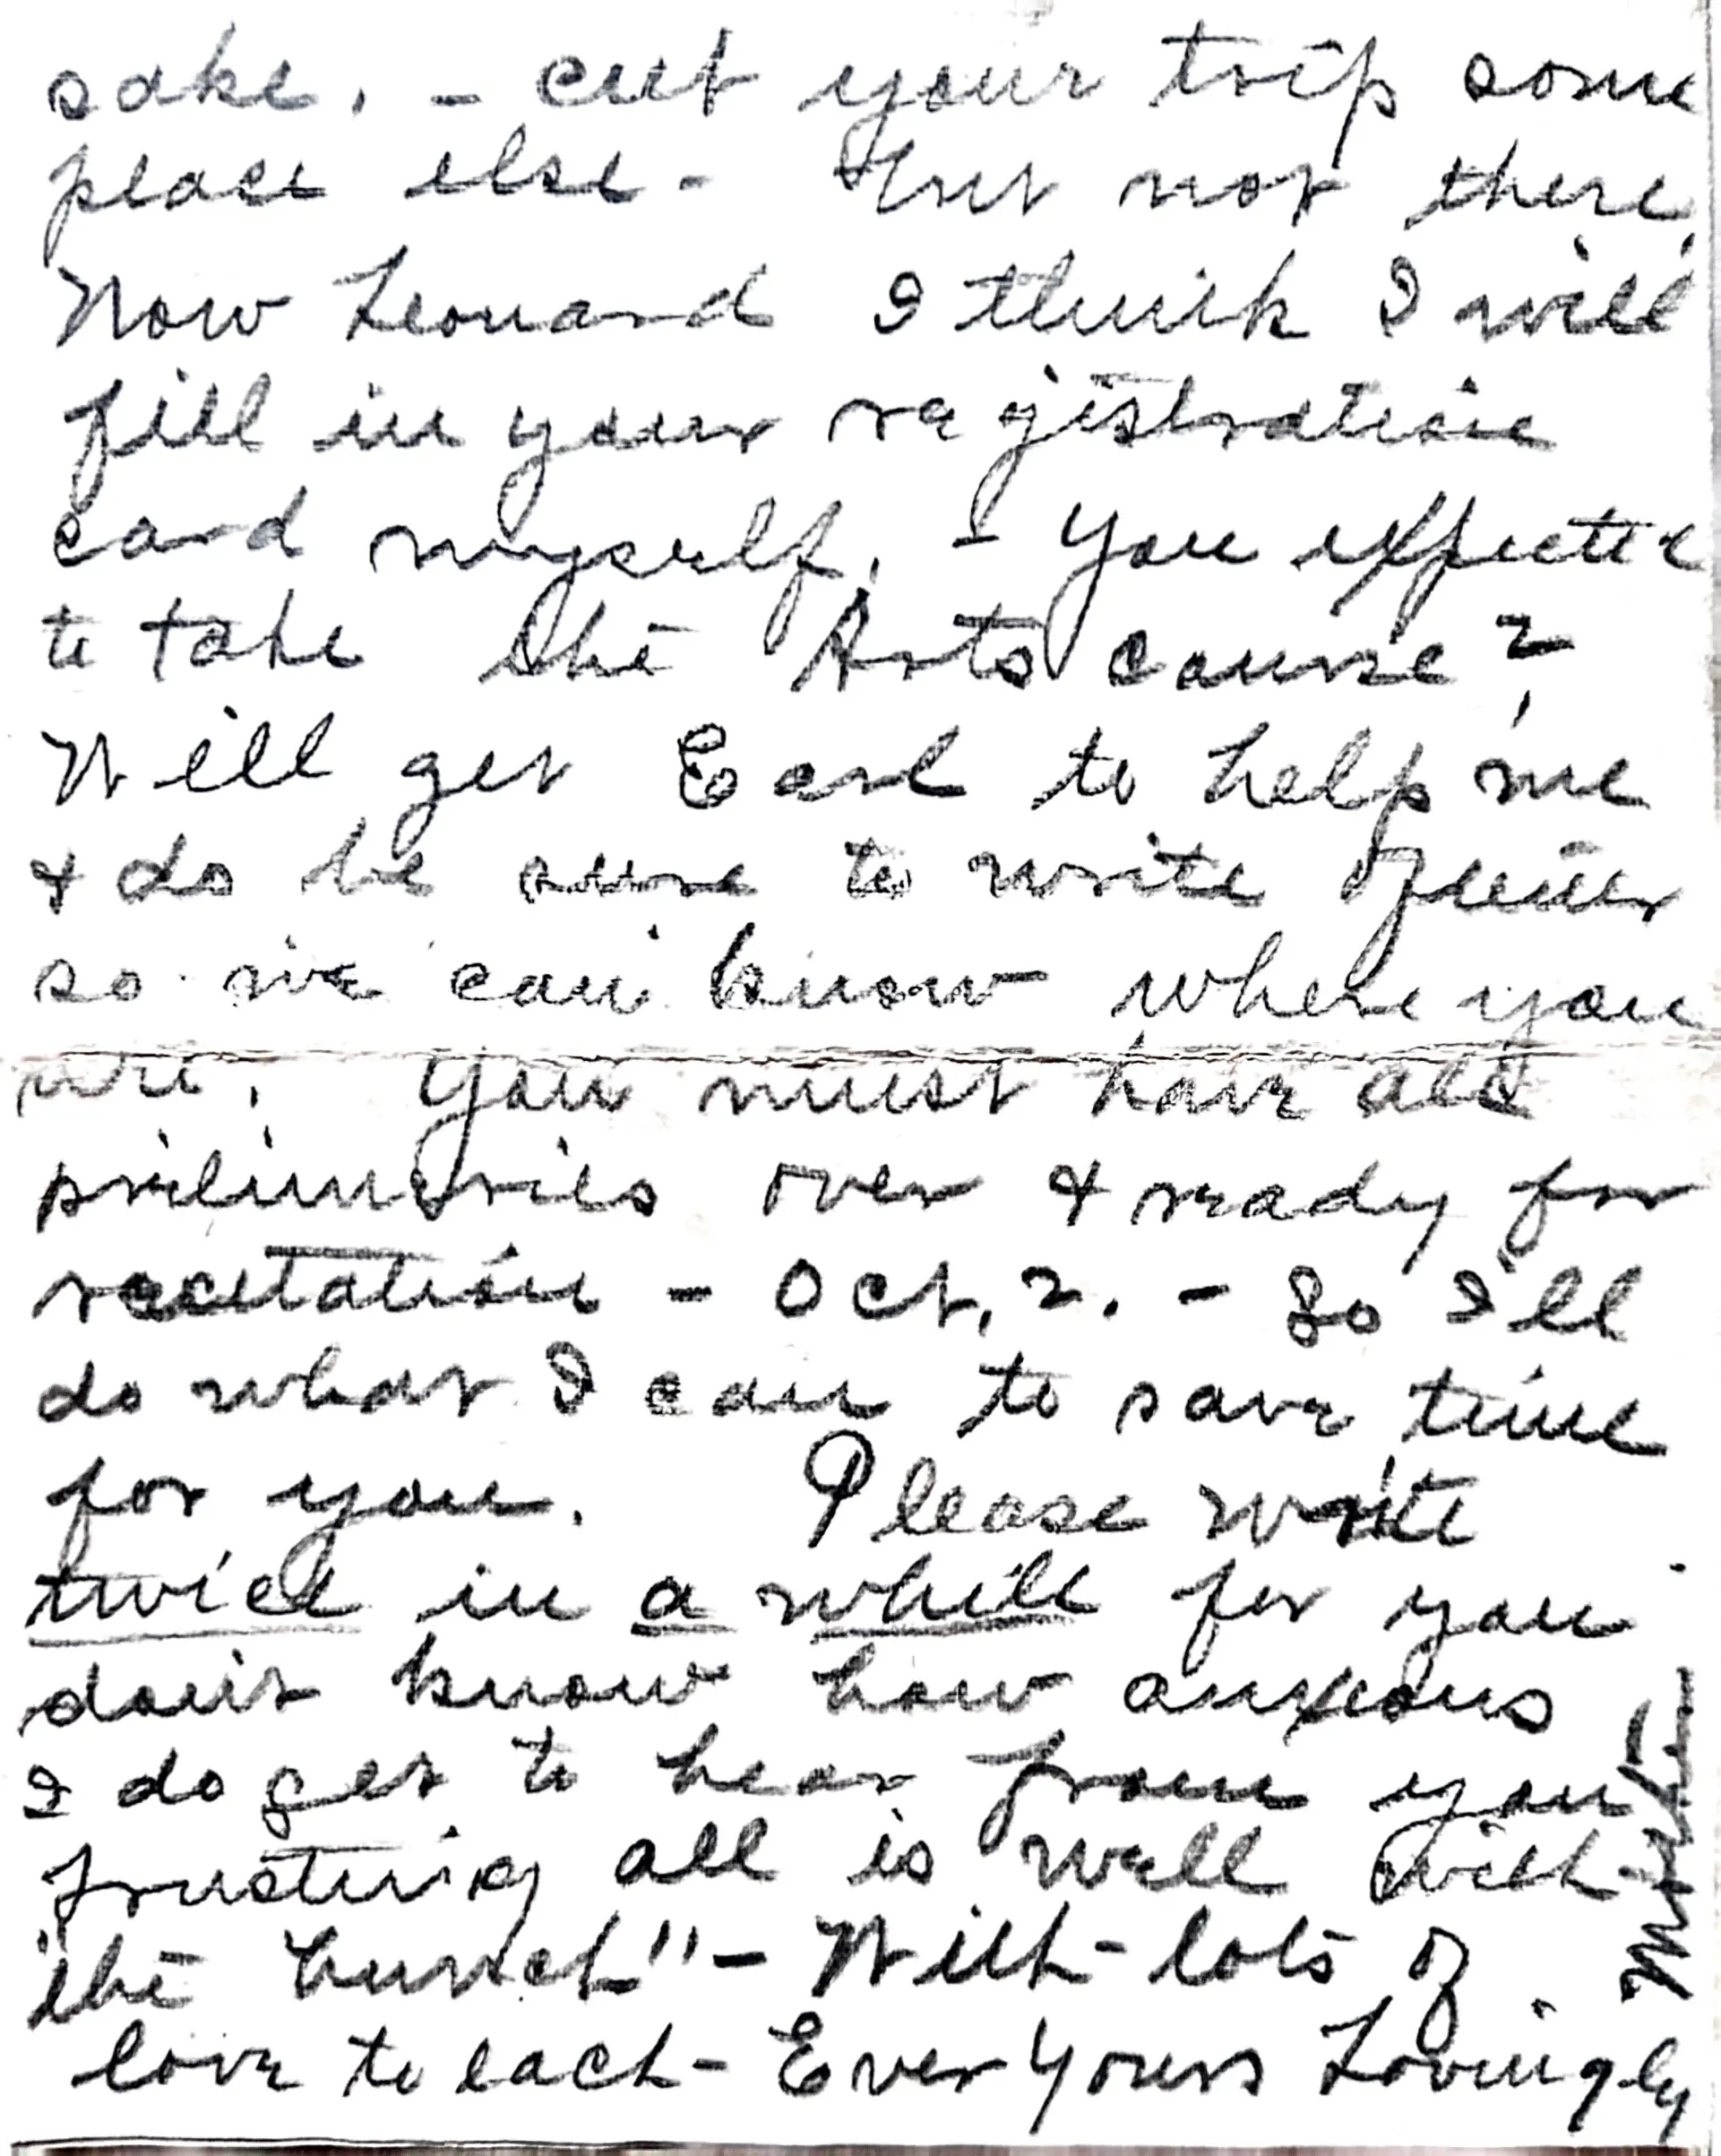 sake. - cut your trip some
place else - but not there.
Now Leonard I think I will
fill in your registration
card myself. - You expect
to take the Arts course?
Will get Earl to help me
& do be sure to write oftener
so we can know where you
are. You must have all
prelimaries over & ready for
recitation - Oct. 2. - So I'll
do what I can to save time
for you. Please write
twice in a while for you
don't know how anxious
I do get to hear from you
Trusting all is well with
the "bunch" - With lots of
love to each - Ever Yours Lovingly
Mother